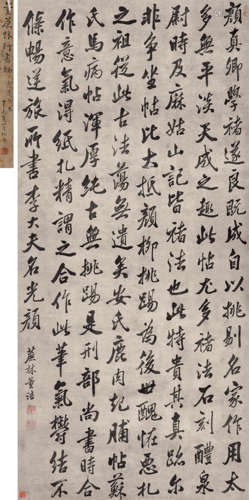 顏真卿學褚遂良既成自以挑踢名家作用太
多無平淡天成之趣此帖尤多褚法石刻醴泉
尉時及麻姑山記皆褚法也此特貴其真跡尔
非爭坐帖比大抵顏柳挑踢為後世醜怪惡札
之祖從此古法蕩無遺矣安氏鹿肉乾脯帖蘇
氏馬病帖渾厚純古無挑踢是刑部尚書時合
作意氣得紙札精謂之合作此筆氣鬱結不
條暢逆旅所書李大夫名光顏
蔗林董誥